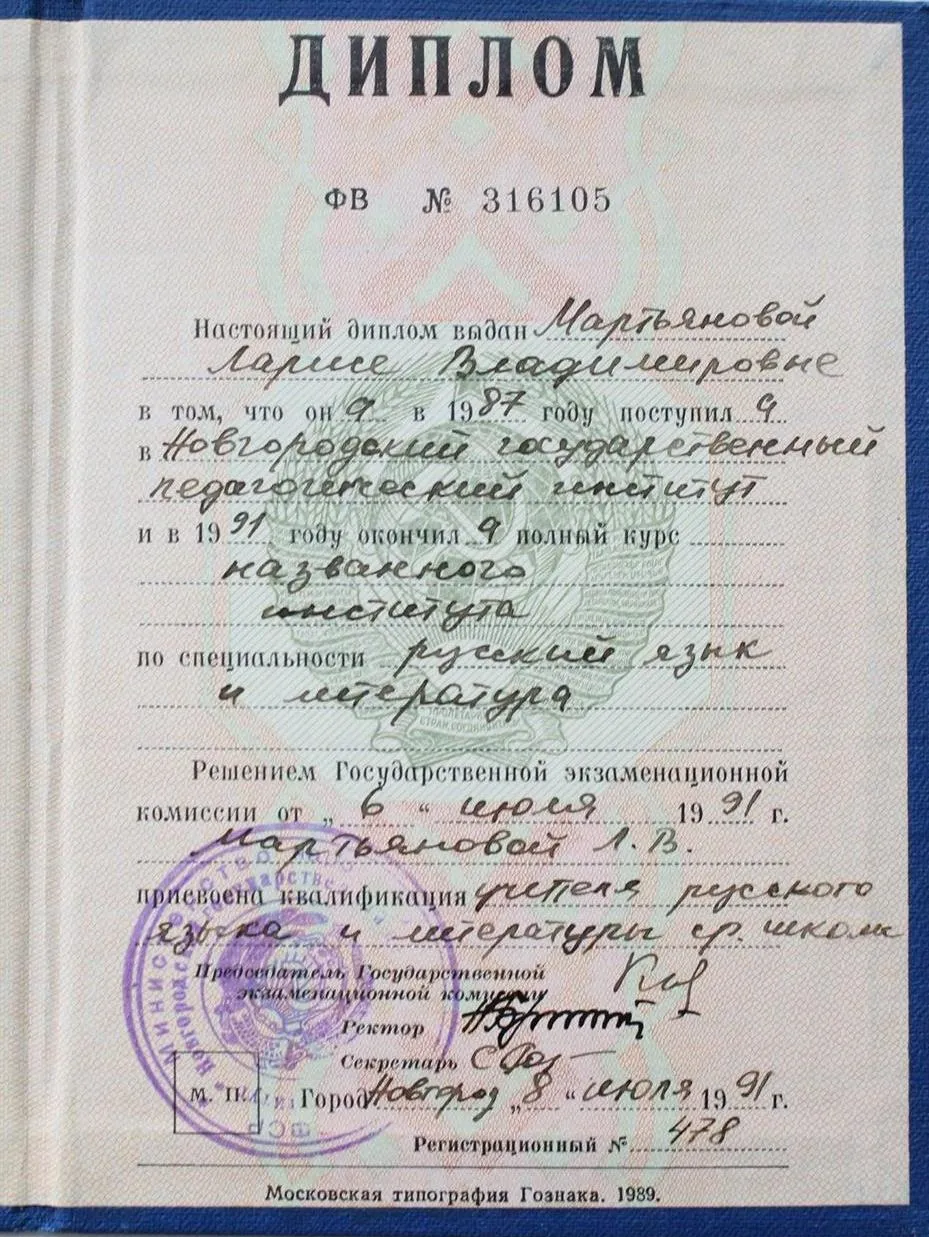 ДИПЛОМ
ФВ № 316105
Настоящий диплом выдан Мартьяновой
Ларисе Владимировне
в том, что он а в 1987 году поступил а
в Новгородский государственный
педагогический институт
и в 1991 году окончил а полный курс
названного
института
по специальности русский язык
и литература
Решением Государственной экзаменационной
комиссии от „ 6 “ июля 1991 г.
Мартьяновой Л. В.
присвоена квалификация учителя русского
языка и литературы ср. школы
Председатель Государственной
экзаменационной комиссии
Ректор
Секретарь
М. П.
Город Новгород „ 8 “ июля 1991 г.
Регистрационный № 478
Московская типография Гознака. 1989.